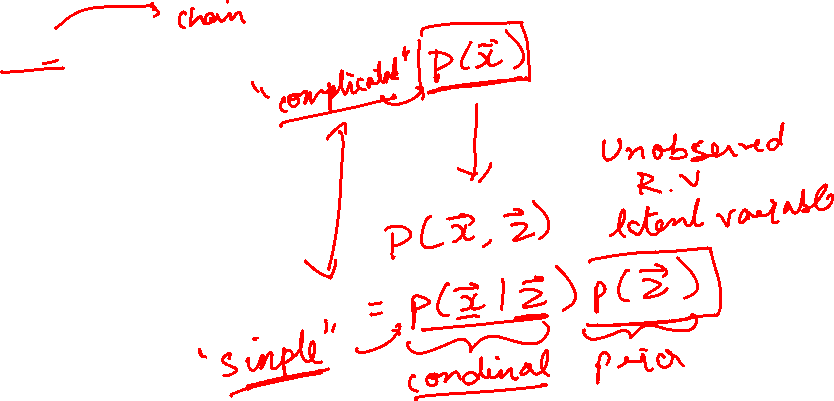 chain
"complicated" P(x⃗)
Unobserved
R.V
latent variable
P(x⃗, z⃗)
= P(x⃗ | z⃗) P(z⃗)
"simple"
condinal
prior